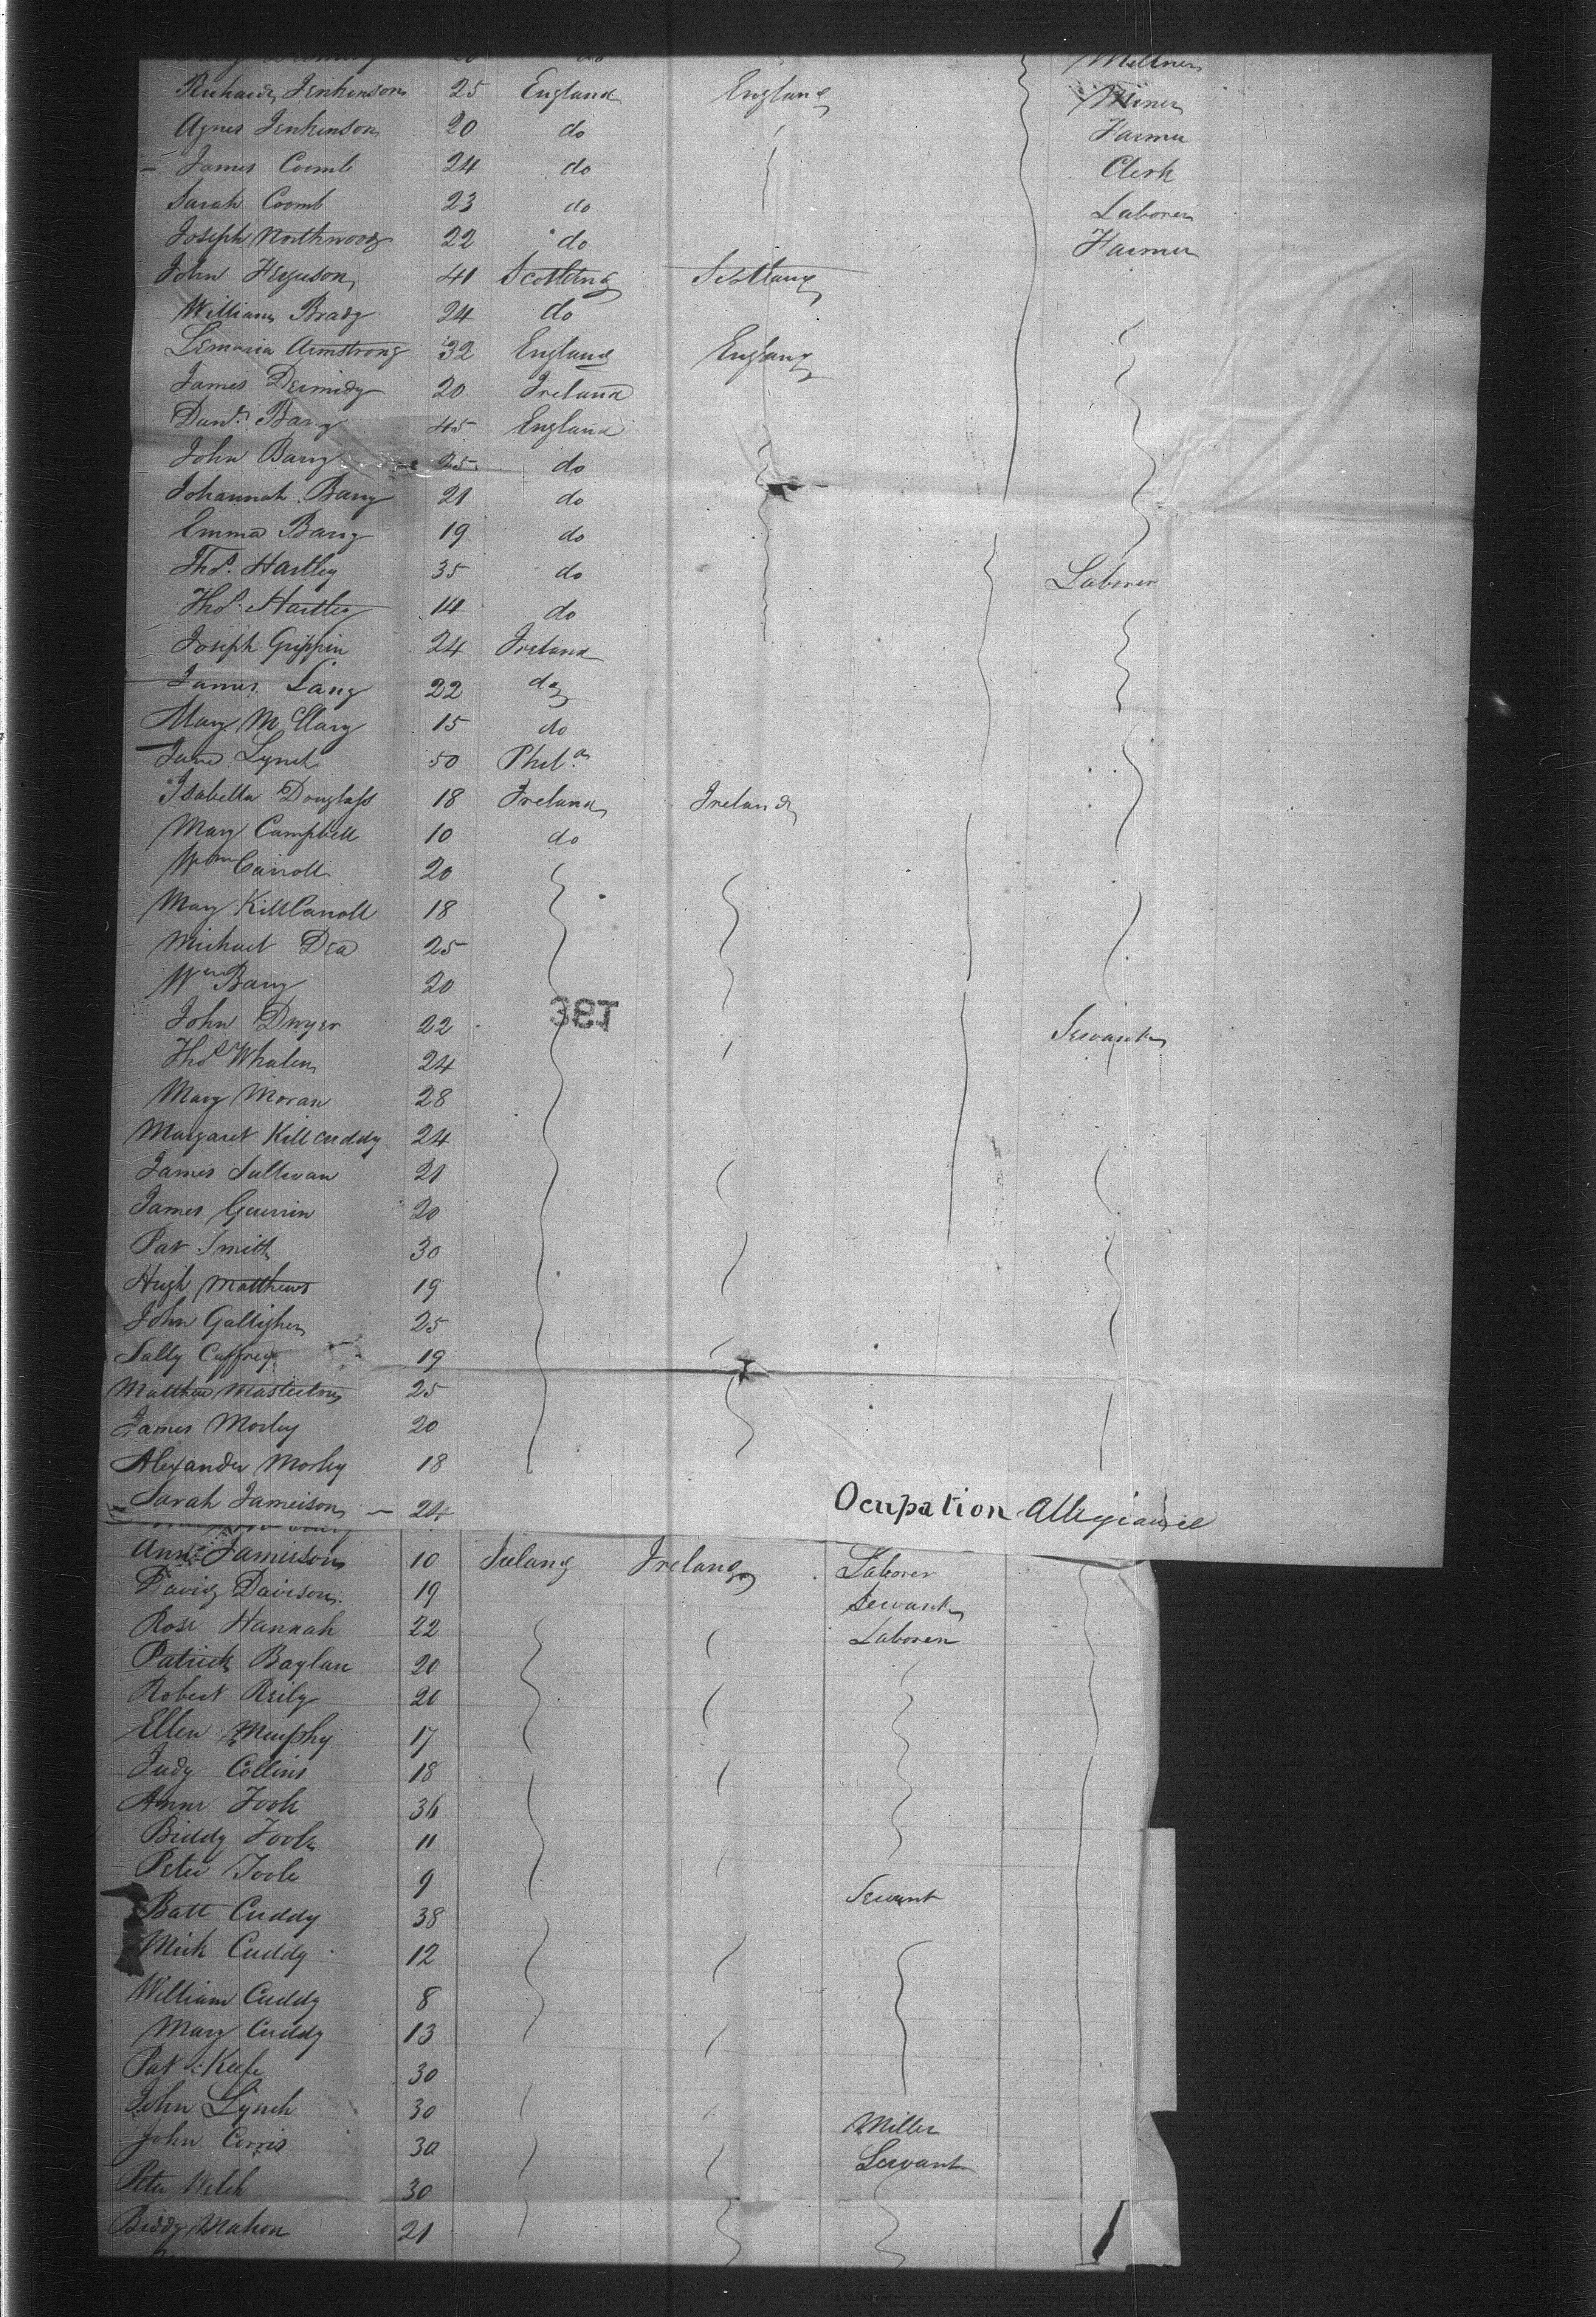 Millner
Richard Jenkinson 25 England England Miner
Agnes Jenkinson 20 do Farmer
James Coomb 24 do Clerk
Sarah Coomb 23 do Laborer
Joseph Northwood 22 do Farmer
John Ferguson 41 Scotland Scotland
William Brady 24 do
Armstrong 32 England England
James Dermidy 20 Ireland
Danl. Barry 45 England
John Barry 25 do
Johannah Barry 21 do
Emma Barry 19 do
Thos. Hartley 35 do Laborer
Thos. Hartley 14 do
Joseph Grippin 24 Ireland
James Lang 22 do
Mary McClary 15 do
Jane Lynch 50 Phila
Isabella Douglass 18 Ireland Ireland
Mary Campbell 10 do
Wm Carroll 20
Mary KillCarroll 18
Michael Dea 25
Wm Barry 20
John Dwyer 22 Servant
Thos Whalen 24
Mary Moran 28
Margaret Killcuddy 24
James Sullivan 21
James Guerrin 20
Pat Smith 30
Hugh Matthews 19
John Galligher 25
Sally Caffrey 19
Matthew Masterton 25
James Morley 20
Alexander Morley 18
Sarah Jameison 24 Ocupation Allegiance
Ann Jamieson 10 Ireland Ireland Laborer
David Davison 19 Servant
Rose Hannah 22 Laborer
Patrick Baylan 20
Robert Reily 20
Ellen Murphy 17
Judy Collins 18
Anne Toole 36
Biddy Toole 11
Peter Toole 9 Servant
Batt Cuddy 38
Mick Cuddy 12
William Cuddy 8
Mary Cuddy 13
Pat Keefe 30
John Lynch 30 Miller
John Corris 30 Servant
Peter Welch 30
Biddy Mahon 21